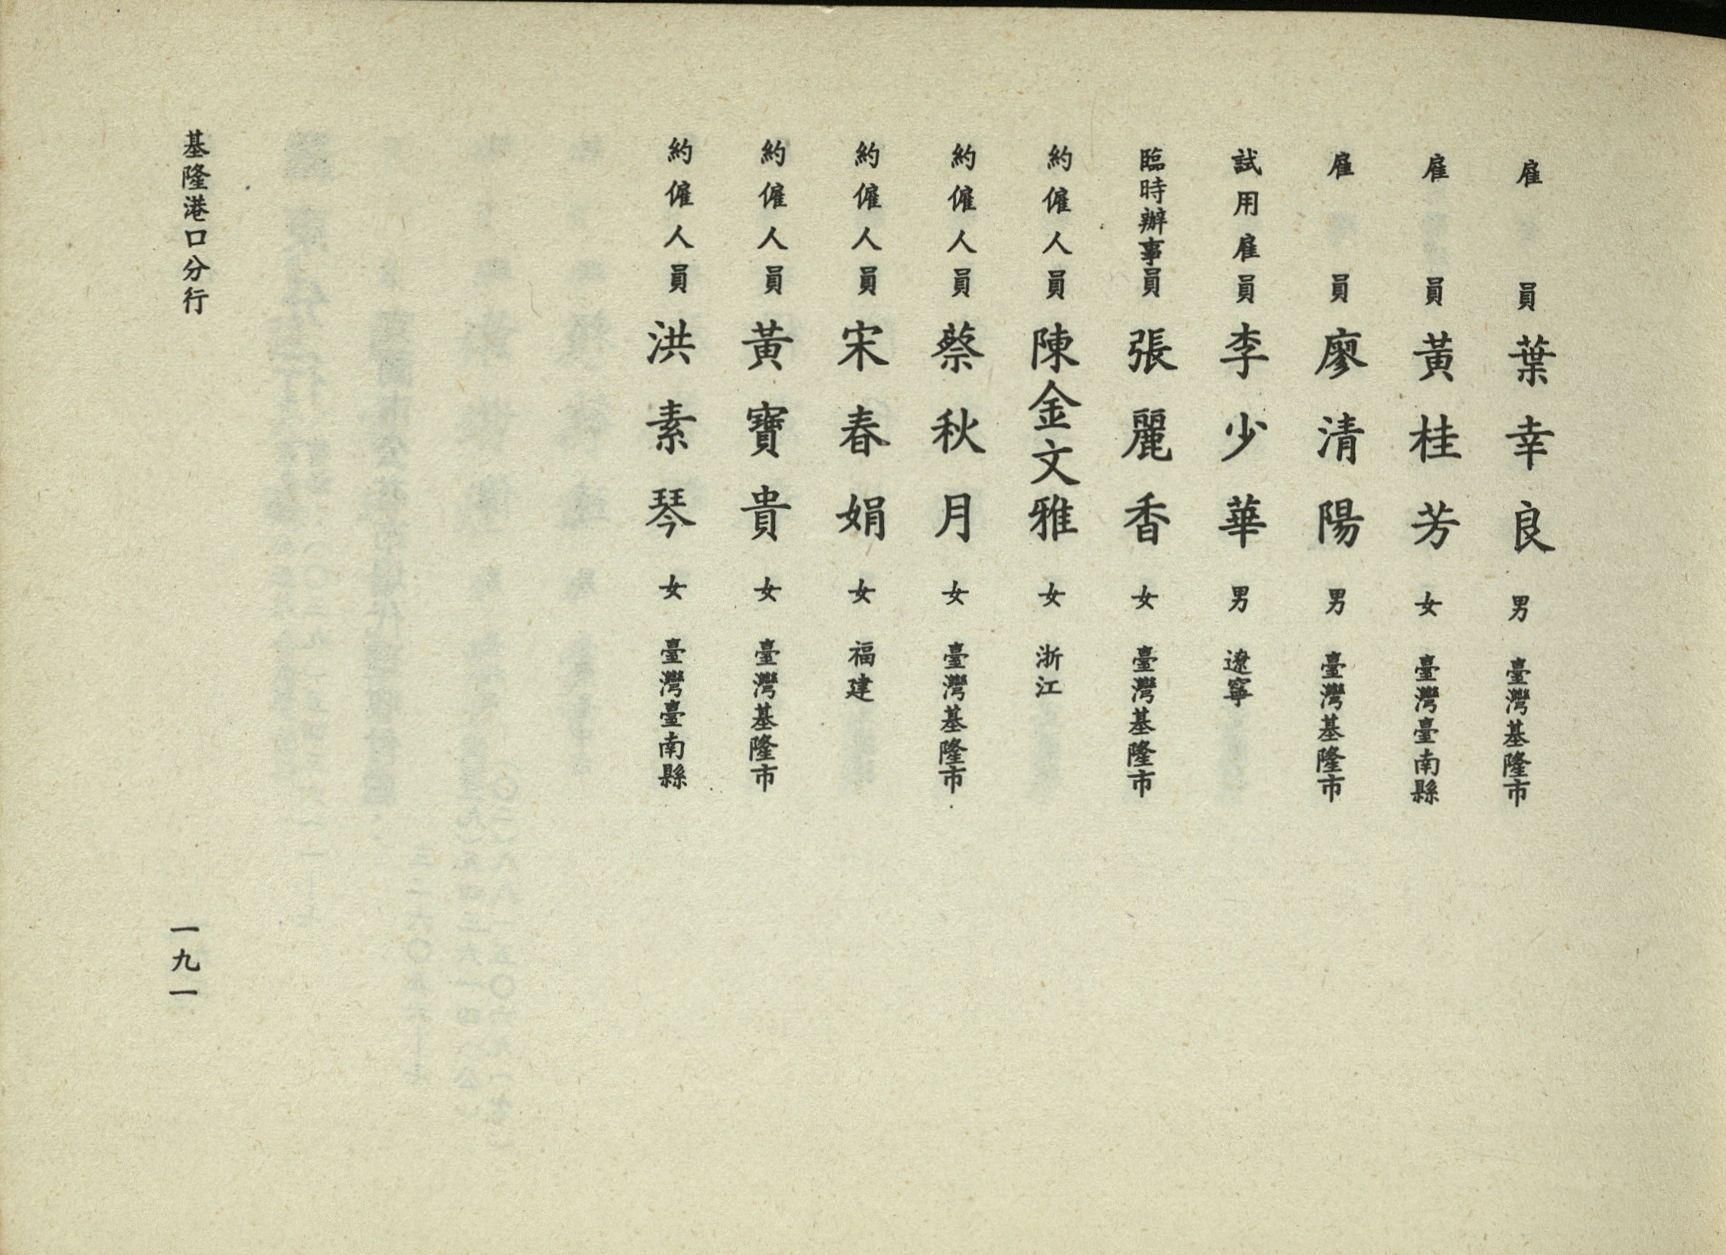 雇員 葉幸良 男 臺灣基隆市
雇員 黃桂芳 女 臺灣臺南縣
雇員 廖清陽 男 臺灣基隆市
試用雇員 李少華 男 遼寧
臨時辦事員 張麗香 女 臺灣基隆市
約僱人員 陳金文雅 女 浙江
約僱人員 蔡秋月 女 臺灣基隆市
約僱人員 宋春娟 女 福建
約僱人員 黃寶貴 女 臺灣基隆市
約僱人員 洪素琴 女 臺灣臺南縣
基隆港口分行
一九一